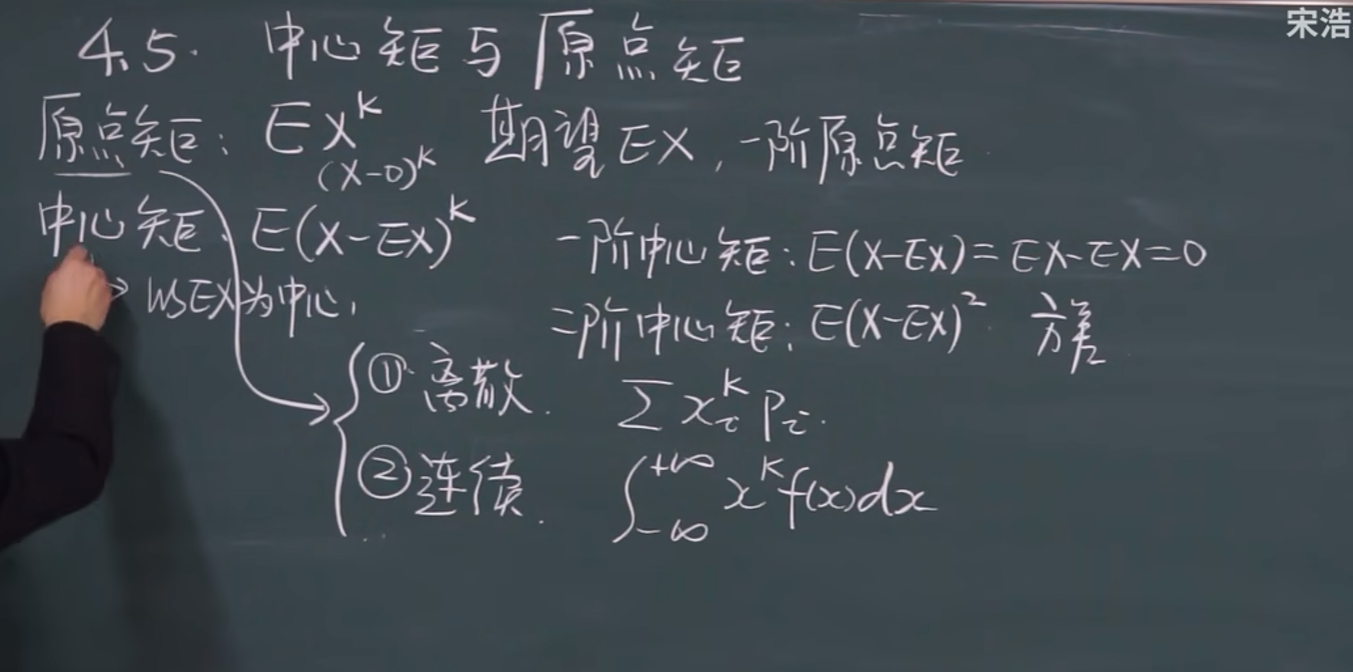 宋浩
4.5. 中心矩与原点矩
原点矩: EX^k 期望EX, 一阶原点矩
(X-0)^k
中心矩 E(X-EX)^k 一阶中心矩: E(X-EX)=EX-EX=0
→ 以EX为中心, 二阶中心矩: E(X-EX)² 方差
① 离散. ∑x_i^k p_i.
② 连续. ∫_{-∞}^{+∞} x^k f(x)dx